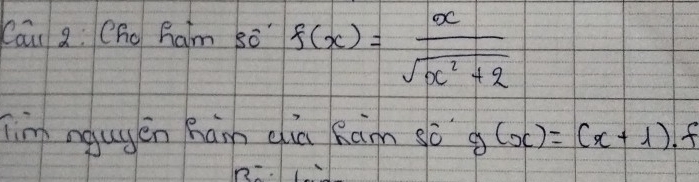 Câu 2: Cho hàm số f(x) = x / √(x² + 2)
Tìm nguyên hàm của hàm số g(x) = (x + 1). f